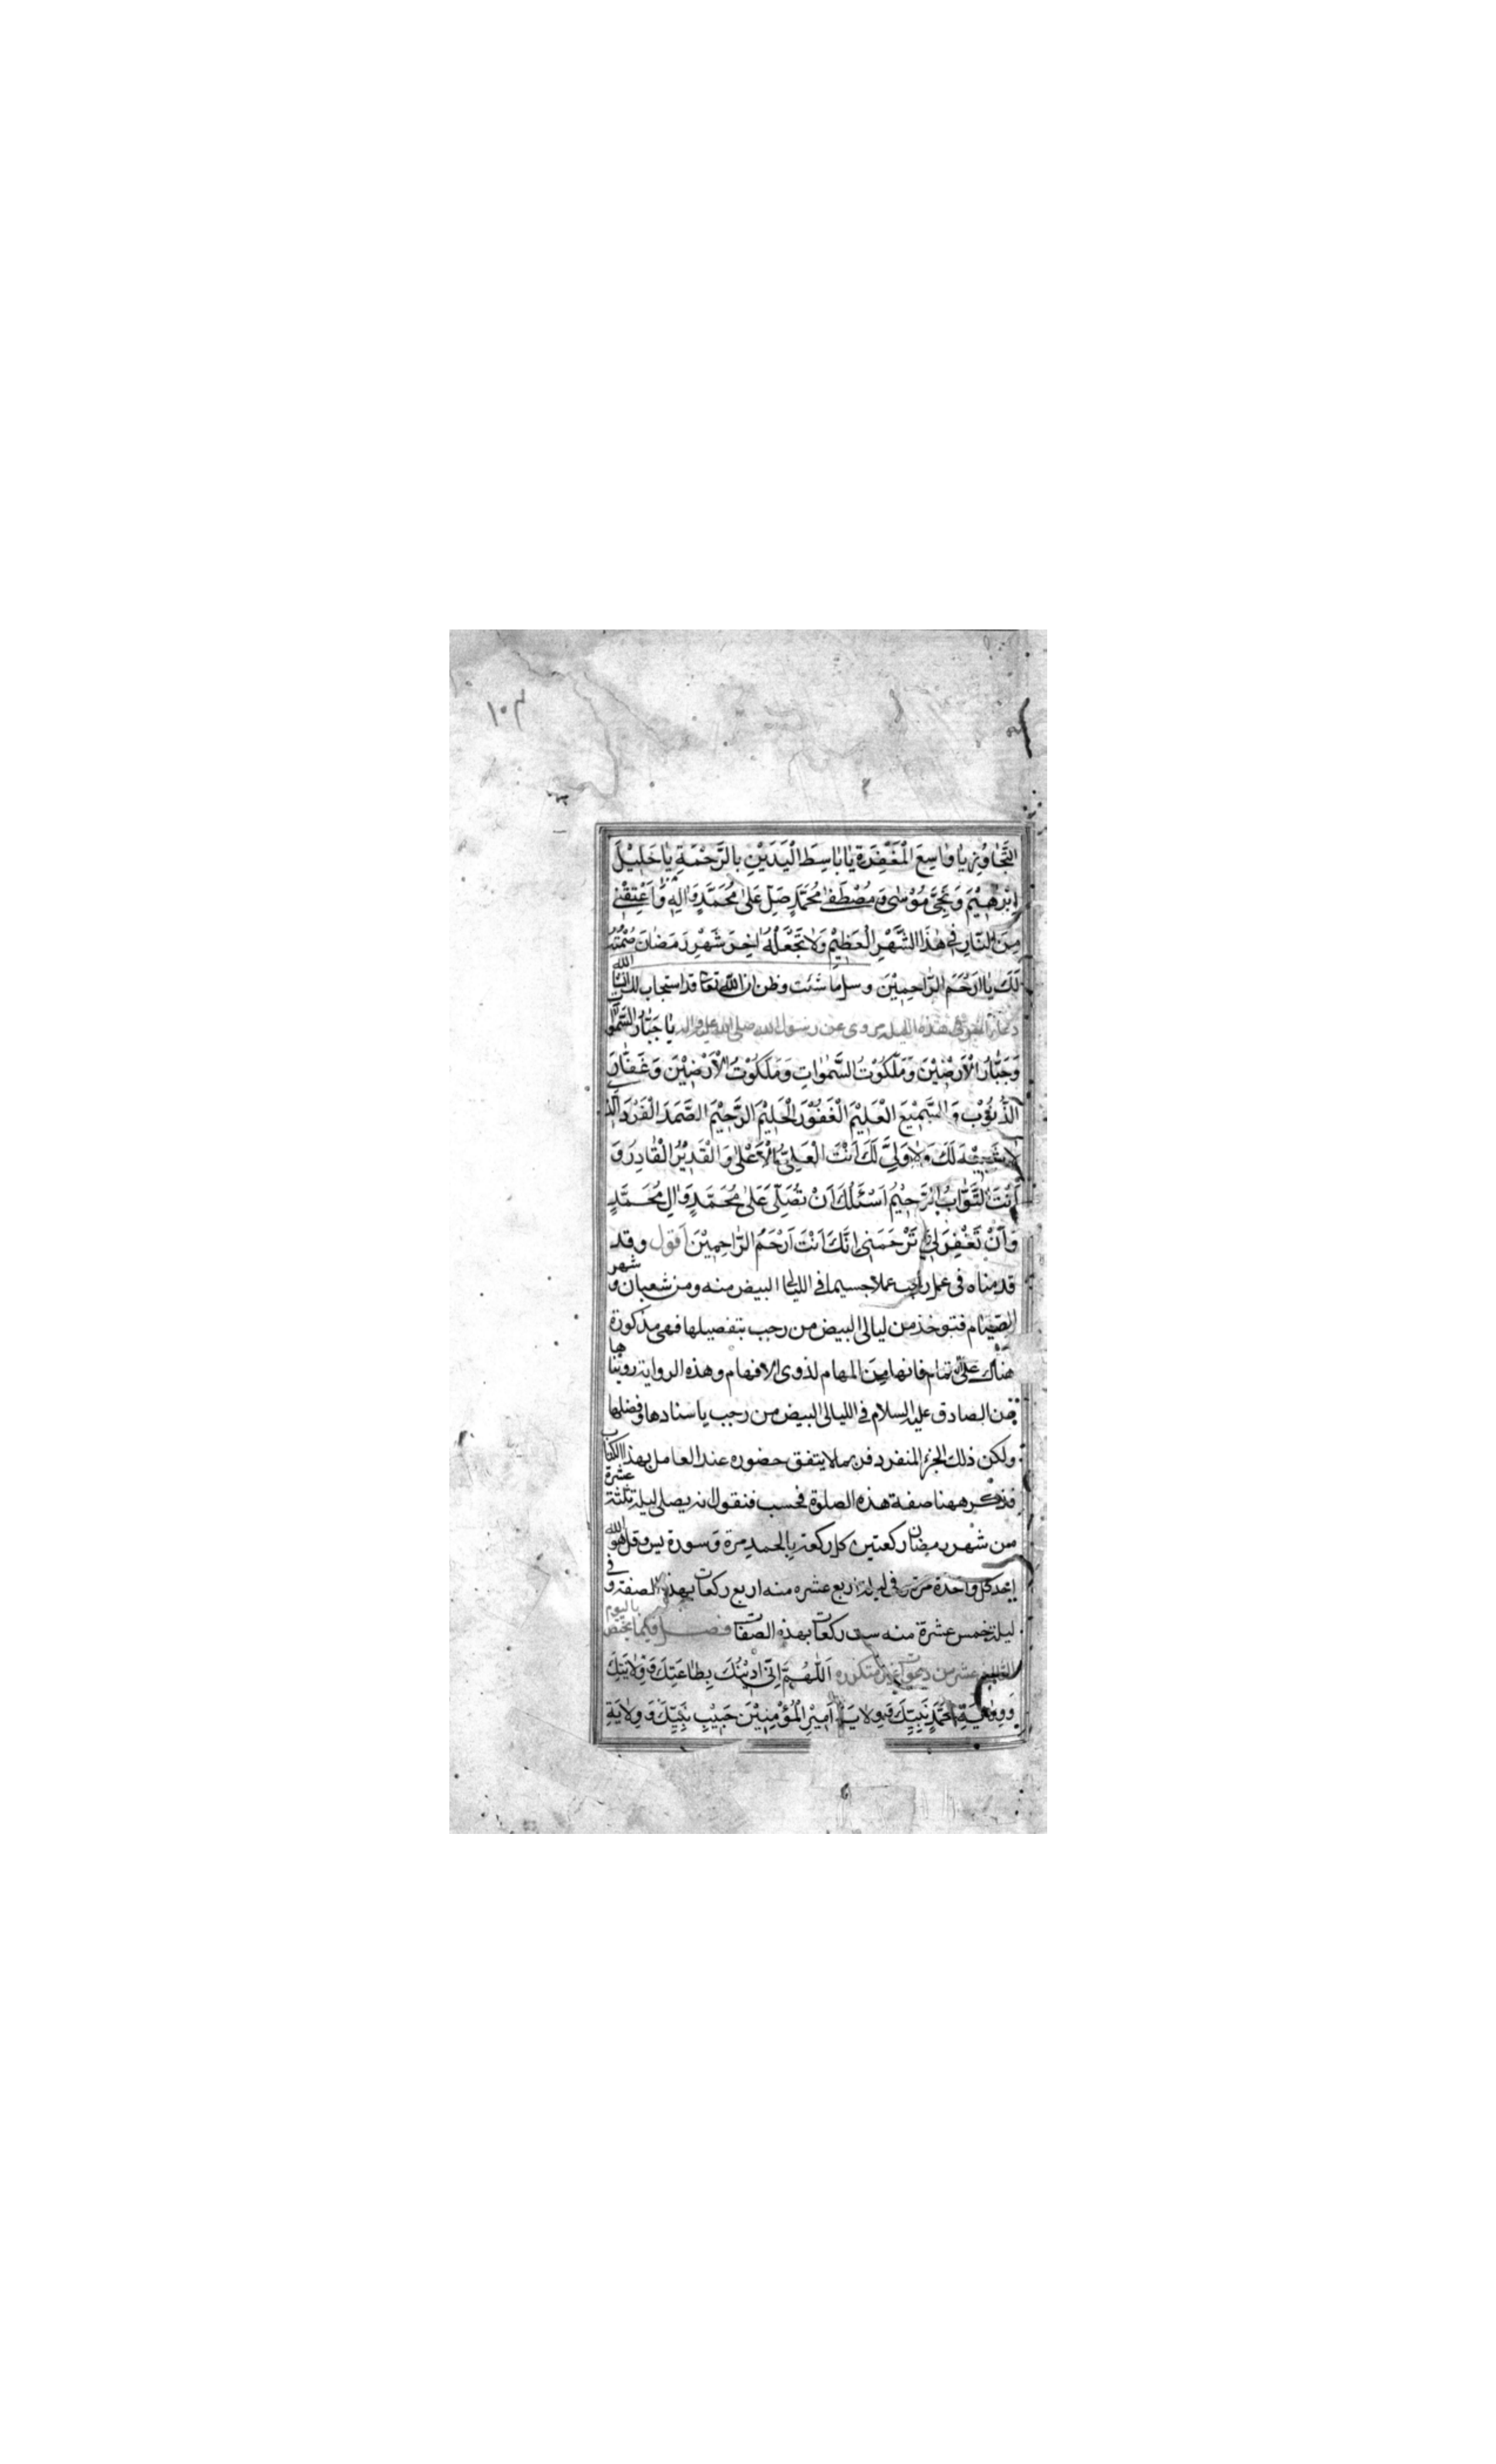 ١٠٣
التَّجَاوُزِ يَا وَاسِعَ الْمَغْفِرَةِ يَا بَاسِطَ الْيَدَيْنِ بِالرَّحْمَةِ يَا خَلِيْلَ
اِبْرٰهِيْمَ وَ نَجِيَّ مُوْسٰى وَ مُصْطَفٰى مُحَمَّدٍ صَلِّ عَلٰى مُحَمَّدٍ وَ اٰلِهٖ وَ اَعْتِقْنِيْ
مِنَ النَّارِ فِيْ هٰذَا الشَّهْرِ الْعَظِيْمِ وَلَا تَجْعَلْهُ اٰخِرَ شَهْرِ رَمَضَانَ صُمْتُهُ
لَكَ يَا اَرْحَمَ الرَّاحِمِيْنَ وسل ما شئت وظن ان الله تعا قد استجاب لك ان شاء الله
دعاء اخر في هذه الليلة مروى عن رسول الله صلى الله عليه واله يَا جَبَّارَ السَّمٰوٰ
وَجَبَّارَ الْاَرَضِيْنَ وَمَلَكُوْتَ السَّمٰوَاتِ وَمَلَكُوْتَ الْاَرَضِيْنَ وَ غَفَّارَ
الذُّنُوْبِ وَ السَّمِيْعَ الْعَلِيْمَ الْغَفُوْرَ الْحَلِيْمَ الرَّحِيْمَ الصَّمَدَ الْفَرْدَ الَّذِي
لَا شَبِيْهَ لَكَ وَلَا وَلِيَّ لَكَ اَنْتَ الْعَلِيُّ الْاَعْلٰى وَ الْقَدِيْرُ الْقَادِرُ وَ
اَنْتَ التَّوَّابُ الرَّحِيْمُ اَسْئَلُكَ اَنْ تُصَلِّيَ عَلٰى مُحَمَّدٍ وَ اٰلِ مُحَمَّدٍ
وَ اَنْ تَغْفِرَ لِيْ وَ تَرْحَمَنِي اِنَّكَ اَنْتَ اَرْحَمُ الرَّاحِمِيْنَ اقول وقد
قدمناه فى عمل رجب عملا جسيما فى الليالى البيض منه ومن شعبان و شهر
الصيام فتوخذ من ليالى البيض من رجب بتفصيلها فهى مذكورة
هناك على التمام فانها من المهام لذوى الافهام وهذه الرواية رويناها
عن الصادق عليه السلام فى الليالى البيض من رجب باسنادها وفضلها
ولكن ذلك الجزء المنفرد فربما لا يتفق حضوره عند العامل بهذا الكتاب
فنذكر ههنا صفة هذه الصلوة فحسب فنقول انه يصلى ليلة ثلثة عشرة
من شهر رمضان ركعتين كل ركعة بالحمد مرة و سورة يس و قل هو الله
احد كل واحدة مرة و فى ليلة اربع عشره منه اربع ركعات بهذه الصفة و فى
ليلة خمس عشرة منه ست ركعات بهذه الصفات فصل فيما يختص باليوم
الثالث عشر من دعوات غير متكررة اَللّٰهُمَّ اِنِّيْ اَدِيْنُكَ بِطَاعَتِكَ وَ وِلَايَتِكَ
وَ وِلَايَةِ مُحَمَّدٍ نَبِيِّكَ وَ وِلَايَةِ اَمِيْرِ الْمُؤْمِنِيْنَ حَبِيْبِ نَبِيِّكَ وَ وِلَايَةِ